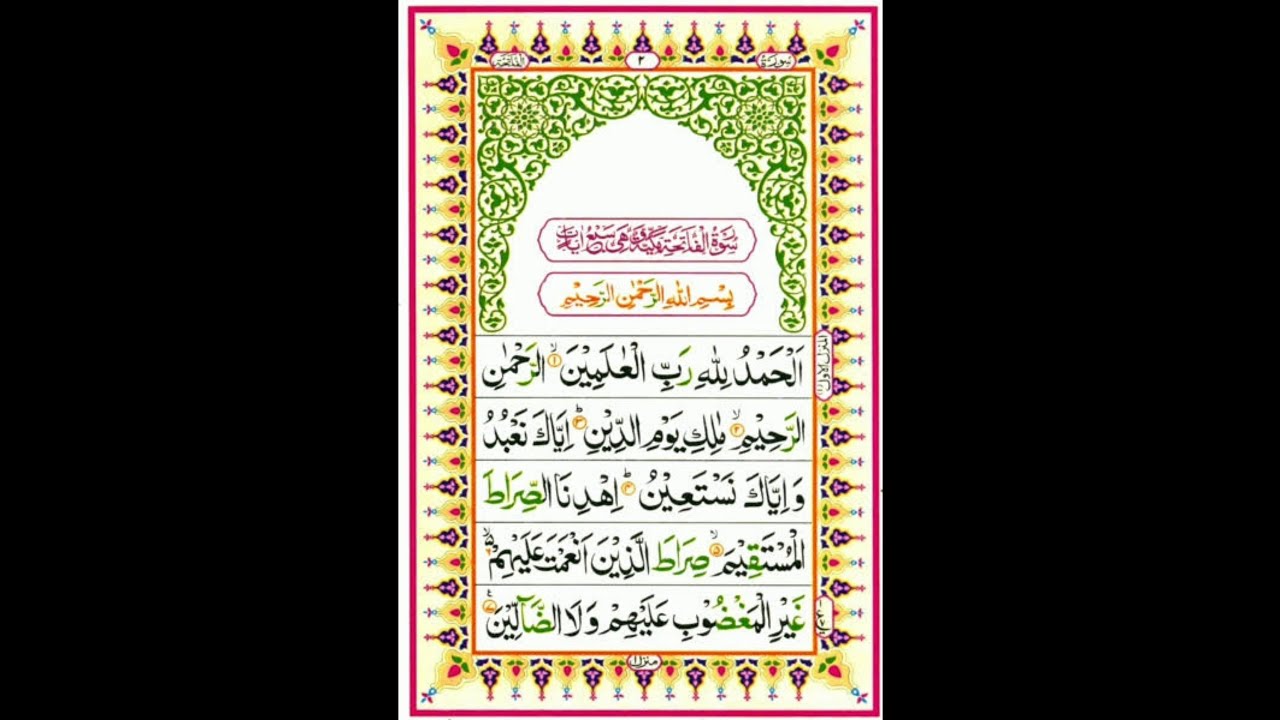 سورة
٢
الفاتحة
سورة الفاتحة مكية وهي سبع آيات
بِسْمِ اللهِ الرَّحْمٰنِ الرَّحِيْمِ
اَلْحَمْدُ لِلّٰهِ رَبِّ الْعٰلَمِيْنَ ۙ۱ الرَّحْمٰنِ
الرَّحِيْمِ ۙ۲ مٰلِكِ يَوْمِ الدِّيْنِ ؕ۳ اِيَّاكَ نَعْبُدُ
وَاِيَّاكَ نَسْتَعِيْنُ ؕ۴ اِهْدِنَا الصِّرَاطَ
الْمُسْتَقِيْمَ ۙ۵ صِرَاطَ الَّذِيْنَ اَنْعَمْتَ عَلَيْهِمْ ۙ۶
غَيْرِ الْمَغْضُوْبِ عَلَيْهِمْ وَلَا الضَّآلِّيْنَ ۷
المنزل الاول
منزل ١